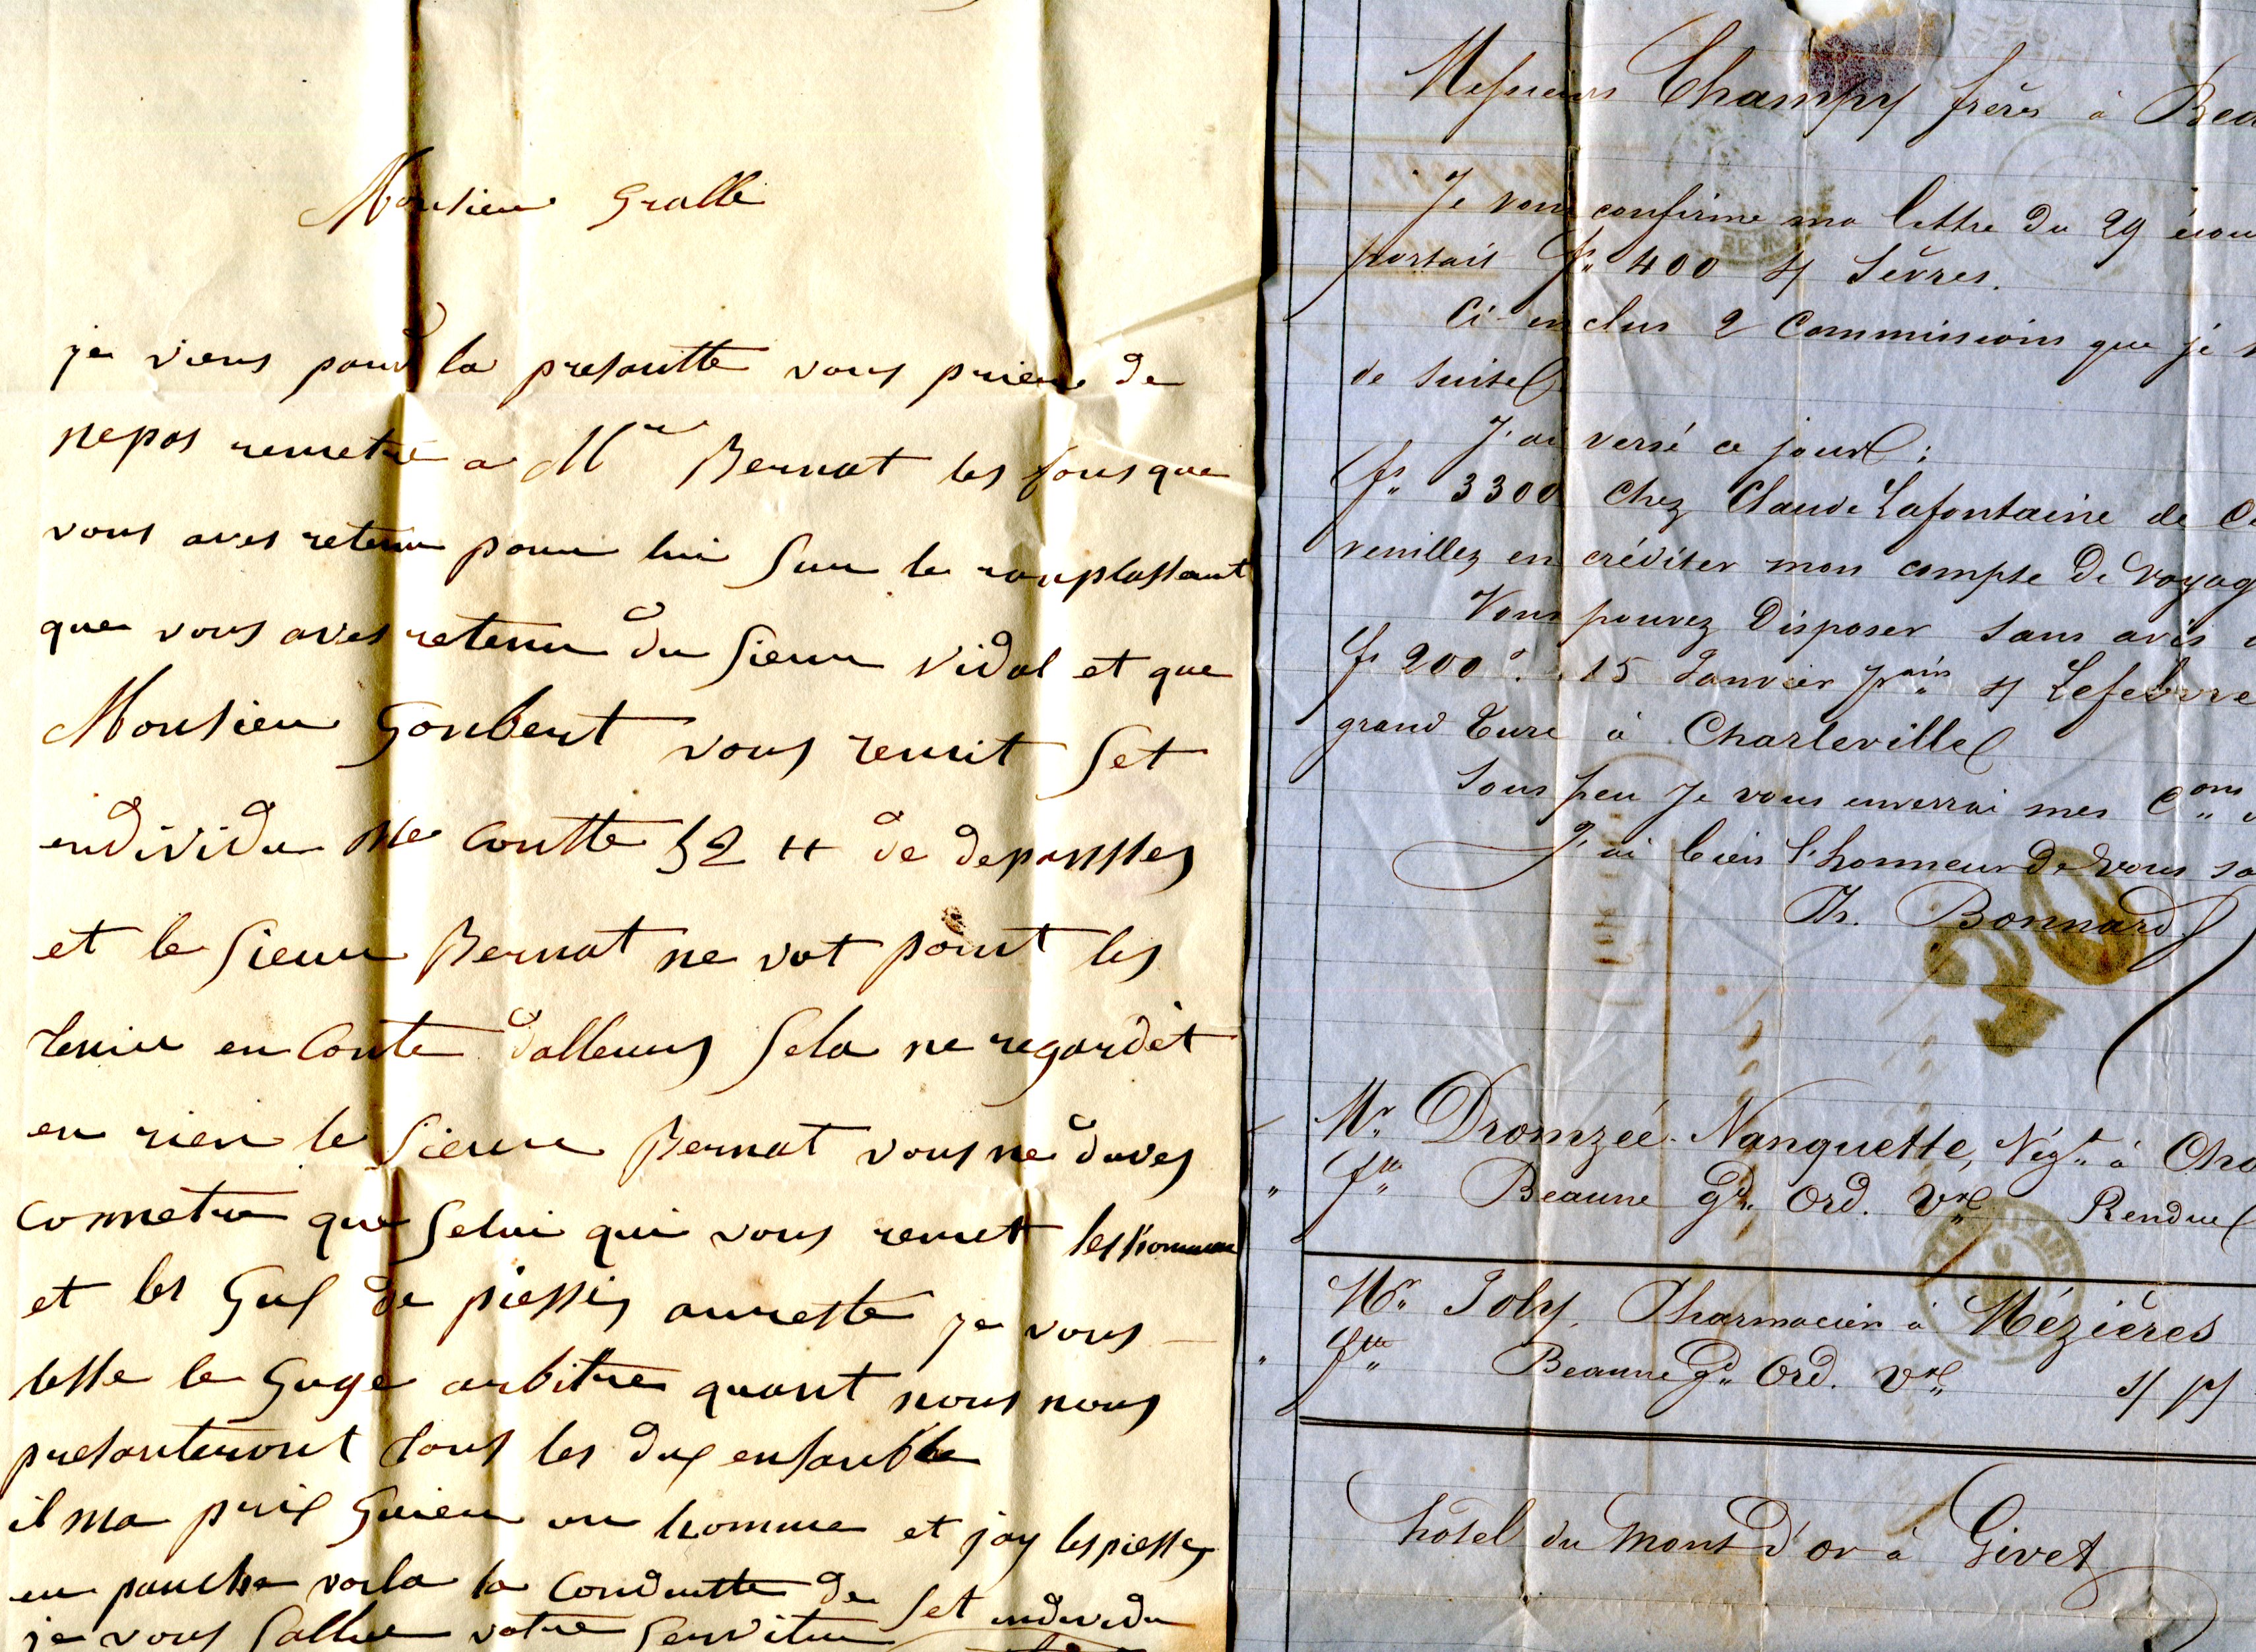 Monsieur Gralle
je viens pour la presantte vous prier de
nepas remetre a Mr Bernat les fons que
vous aves retenu pour lui sur le ranplassant
que vous aves retenu du sieur vidal et que
Monsieur Gonbert vous remit set
endividu me coutte 52 de depansses
et le sieur Bernat ne vot point les
tenir en Conte dalleurs sela ne regardèt
en rien le sieur Bernat vous ne daves
connetre que selui qui vous remet les homme
et les de piesses aureste je vous
lesse le Guge arbitre quant nous nous
presanteront tous les dux ensanble
il ma prix un homme et jay les piesses
en poache voila la Conduitte de set individu
je vous sallue votre serviteur
Messieurs Champy frères à Bea
Je vous confirme ma lettre du 29 écou
portait fs 400 s/ Sèvres.
Ci-inclus 2 Commissions que je
de suite
J'ai versé ce jour :
fs 3300 chez Claude Lafontaine de C
veuillez en créditer mon compte de voyag
Vous pouvez disposer sans avis
fs 200 15 Janvier pain s/ Lefebvre
grand Turc à Charleville
Sous peu Je vous enverrai mes Cons
J'ai bien l'honneur de vous sa
Th. Bonnard
20
Mr Dromzée-Nanquette, Négt à Cha
" fte Beaune Gd Ord. Vx Rendue
Mr Joly, Pharmacien à Mézières
" fte Beaune Gd Ord. Vx s/ p/
hôtel du Mont d'or à Givet